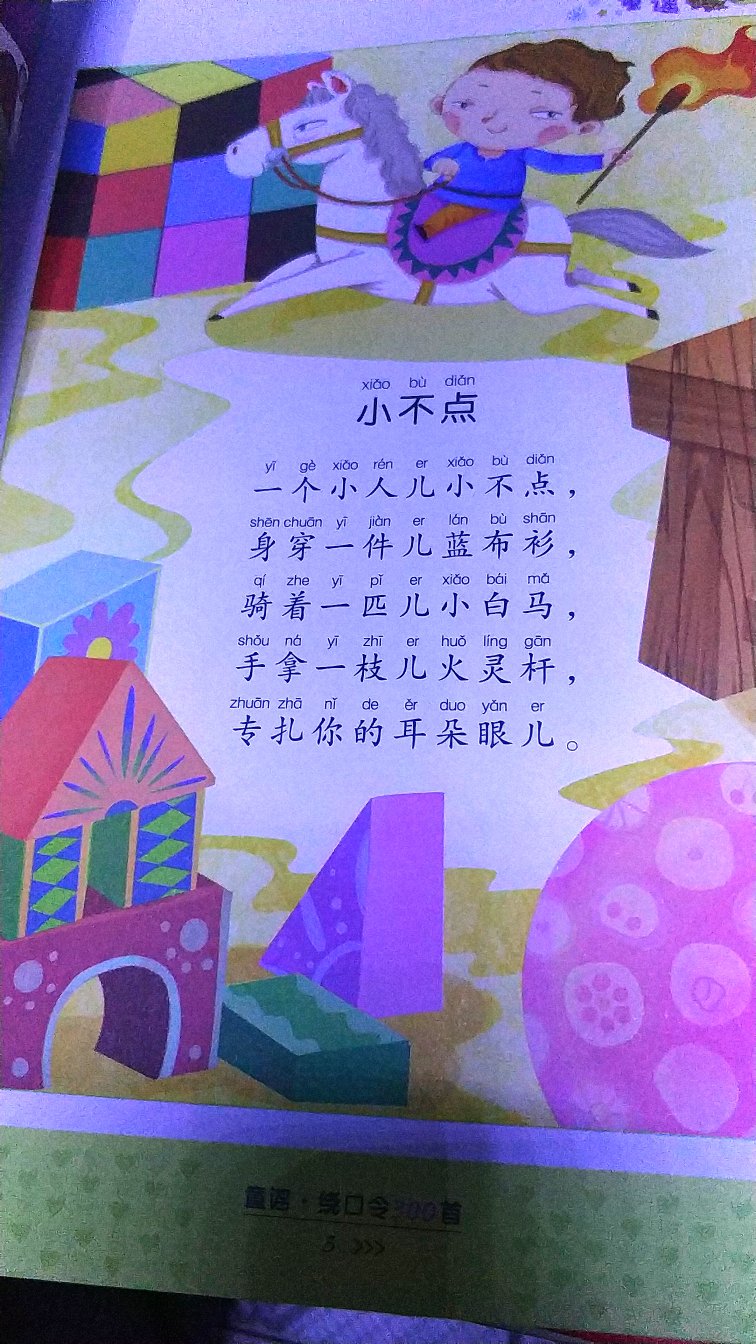 xiǎo bù diǎn
小不点
yī gè xiǎo rén er xiǎo bù diǎn
一个小人儿小不点，
shēn chuān yī jiàn er lán bù shān
身穿一件儿蓝布衫，
qí zhe yī pǐ er xiǎo bái mǎ
骑着一匹儿小白马，
shǒu ná yī zhī er huǒ líng gān
手拿一枝儿火灵杆，
zhuān zhā nǐ de ěr duo yǎn er
专扎你的耳朵眼儿。
童谣·绕口令300首
5 >>>